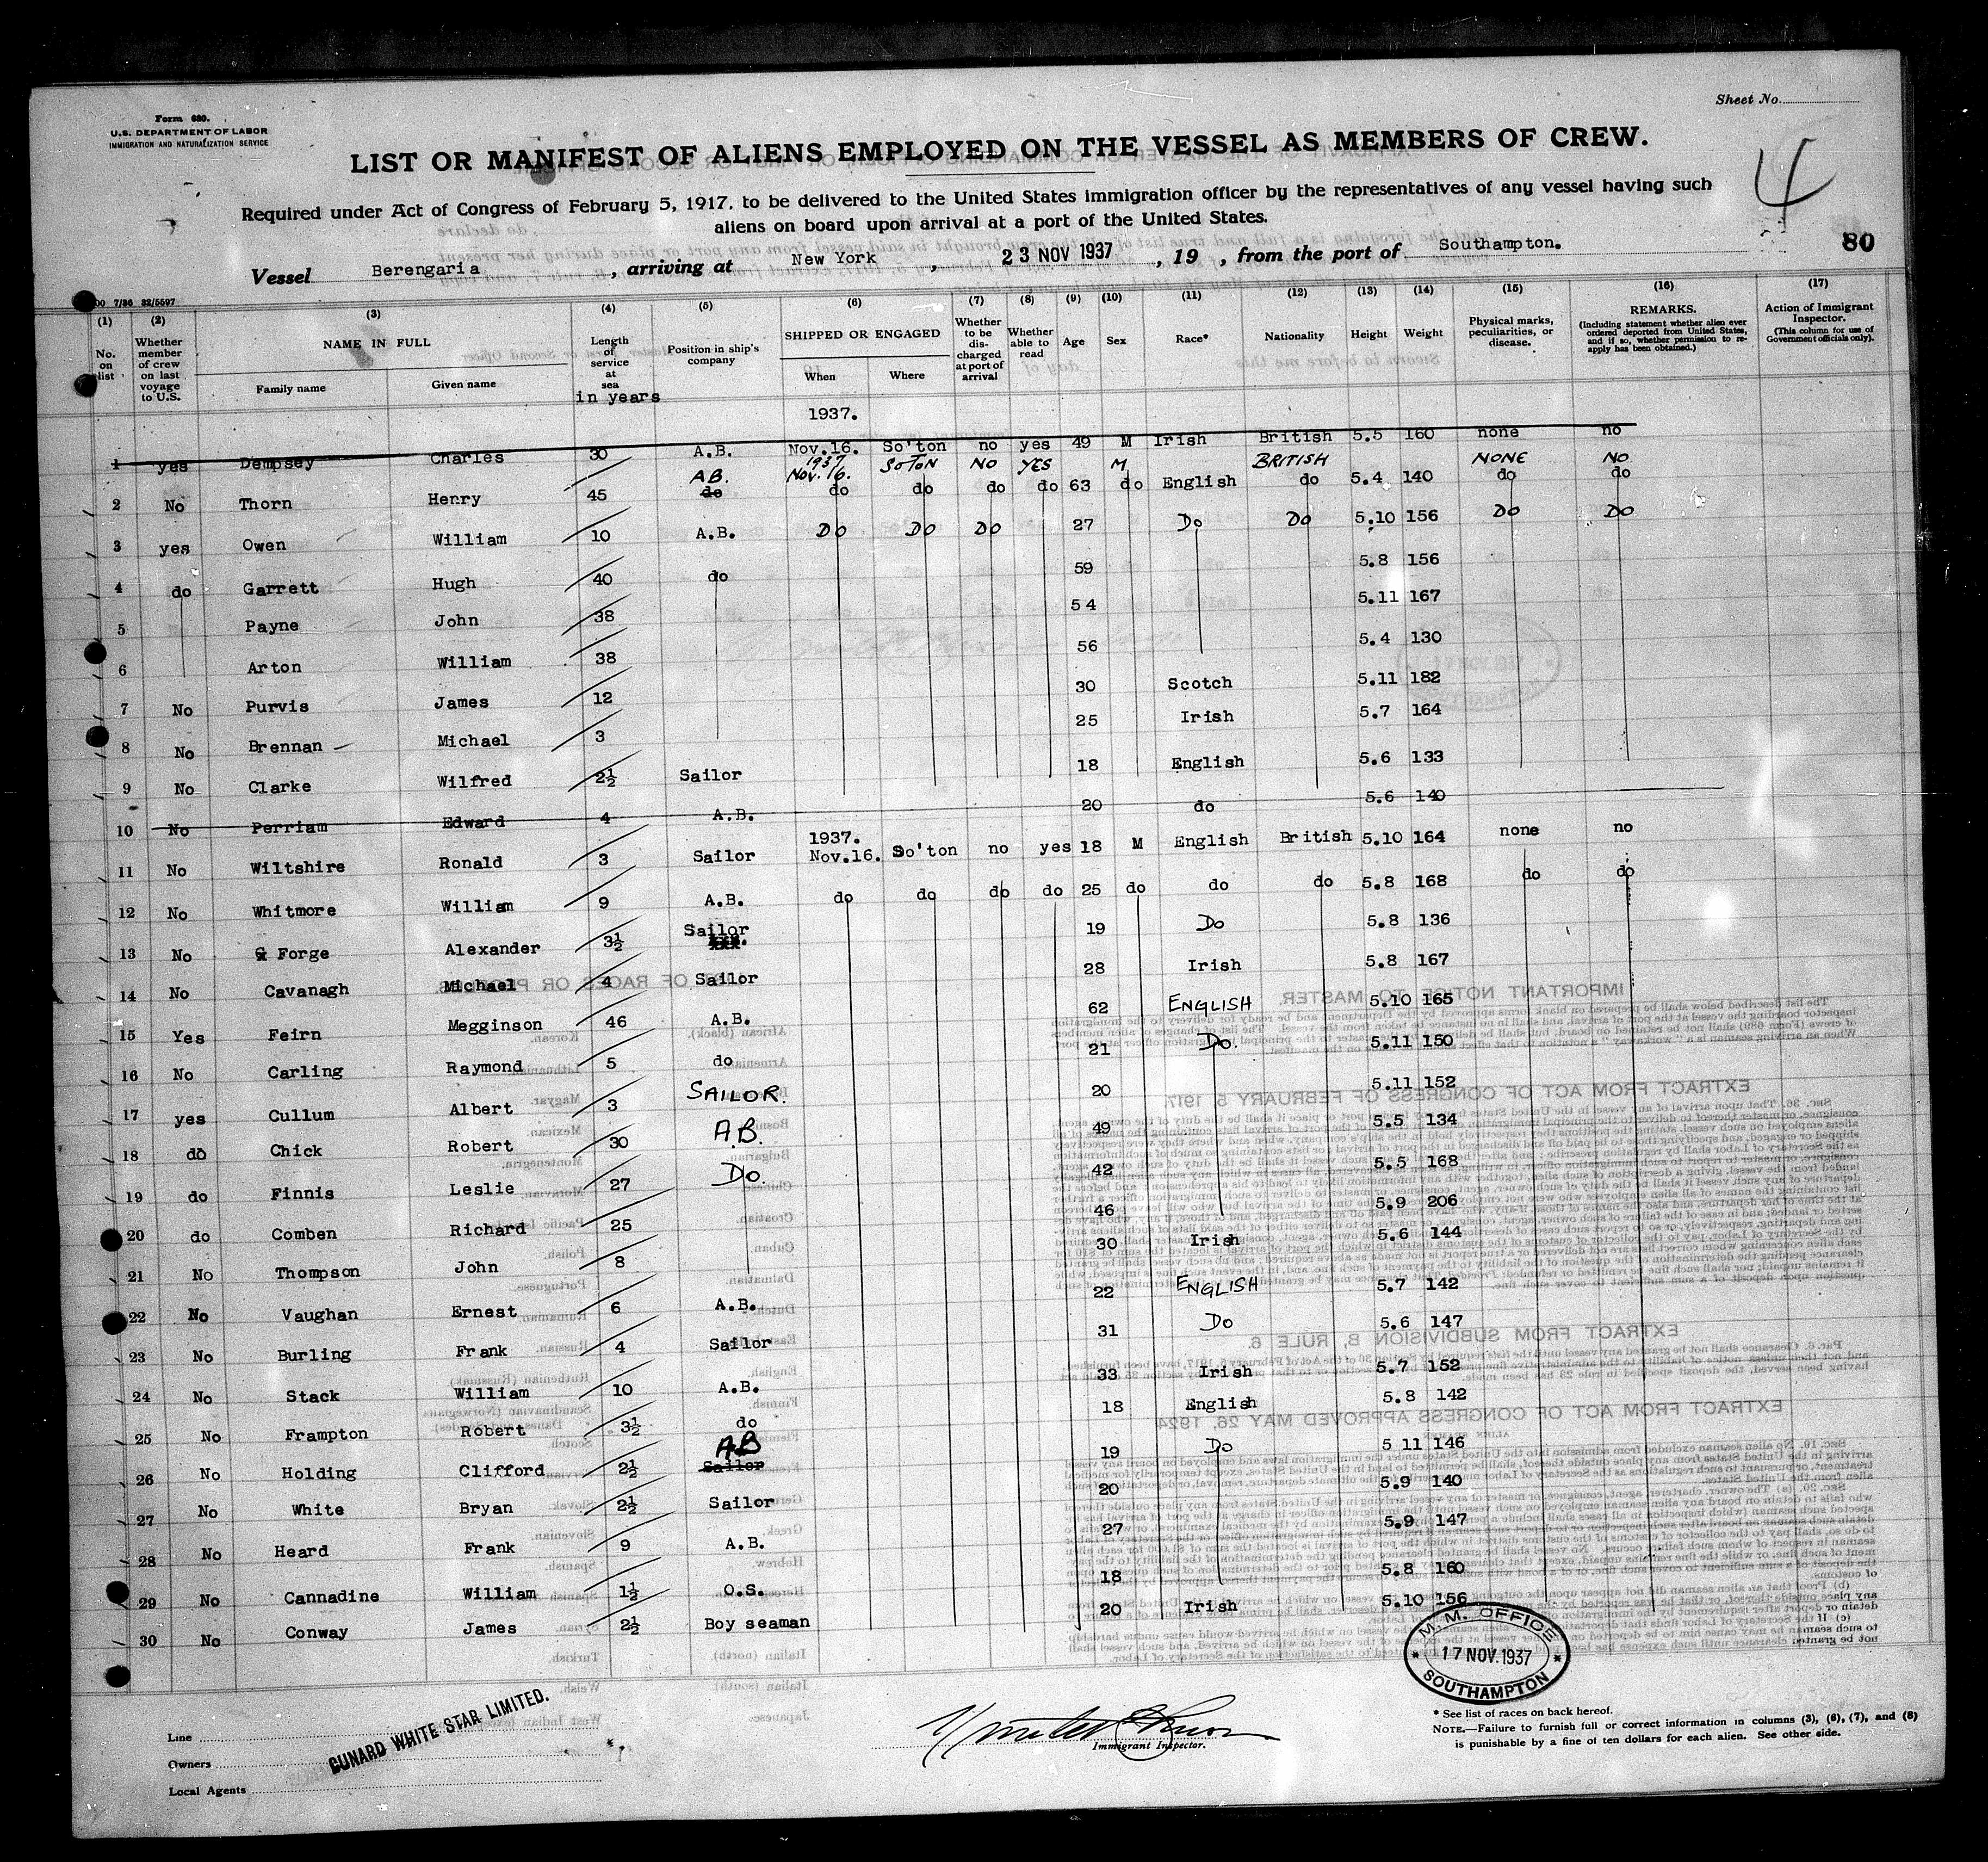 Form 689.
U.S. DEPARTMENT OF LABOR
IMMIGRATION AND NATURALIZATION SERVICE
Sheet No.
LIST OR MANIFEST OF ALIENS EMPLOYED ON THE VESSEL AS MEMBERS OF CREW.
4
Required under Act of Congress of February 5, 1917, to be delivered to the United States immigration officer by the representatives of any vessel having such
aliens on board upon arrival at a port of the United States.
80
Vessel Berengaria, arriving at New York, 23 NOV 1937, 19 , from the port of Southampton.
7/36 32/5597
(1) (2) (3) (4) (5) (6) (7) (8) (9) (10) (11) (12) (13) (14) (15) (16) (17)
No. on list
Whether member of crew on last voyage to U.S.
NAME IN FULL
Family name
Given name
Length of service at sea
in years
Position in ship's company
SHIPPED OR ENGAGED
When
Where
Whether to be discharged at port of arrival
Whether able to read
Age
Sex
Race*
Nationality
Height
Weight
Physical marks, peculiarities, or disease.
REMARKS.
(Including statement whether alien ever ordered deported from United States, and if so, whether permission to reapply has been obtained.)
Action of Immigrant Inspector.
(This column for use of Government officials only).
1937.
1 yes Dempsey Charles 30 A.B. Nov.16. So'ton no yes 49 M Irish British 5.5 160 none no
1937 Nov.16. SOTON NO YES M BRITISH NONE NO
2 No Thorn Henry 45 do AB. do do do do 63 do English do 5.4 140 do do
3 yes Owen William 10 A.B. DO DO DO 27 Do Do 5.10 156 DO DO
4 do Garrett Hugh 40 do 59 5.8 156
5 Payne John 38 54 5.11 167
6 Arton William 38 56 5.4 130
7 No Purvis James 12 30 Scotch 5.11 182
8 No Brennan Michael 3 25 Irish 5.7 164
9 No Clarke Wilfred 2½ Sailor 18 English 5.6 133
10 No Perriam Edward 4 A.B. 20 do 5.6 140
1937.
11 No Wiltshire Ronald 3 Sailor Nov.16. So'ton no yes 18 M English British 5.10 164 none no
12 No Whitmore William 9 A.B. do do do do 25 do do do 5.8 168 do do
13 No Forge Alexander 3½ Sailor 19 Do 5.8 136
14 No Cavanagh Michael 4 Sailor 28 Irish 5.8 167
15 Yes Feirn Megginson 46 A.B. 62 ENGLISH 5.10 165
16 No Carling Raymond 5 do 21 Do. 5.11 150
17 yes Cullum Albert 3 SAILOR. 20 5.11 152
18 do Chick Robert 30 A.B. 49 5.5 134
19 do Finnis Leslie 27 Do. 42 5.5 168
20 do Comben Richard 25 46 5.9 206
21 No Thompson John 8 30 Irish 5.6 144
22 No Vaughan Ernest 6 A.B. 22 ENGLISH 5.7 142
23 No Burling Frank 4 Sailor 31 Do 5.6 147
24 No Stack William 10 A.B. 33 Irish 5.7 152
25 No Frampton Robert 3½ do 18 English 5.8 142
26 No Holding Clifford 2½ AB Sailor 19 Do 5 11 146
27 No White Bryan 2½ Sailor 20 5.9 140
28 No Heard Frank 9 A.B. 27 5.9 147
29 No Cannadine William 1½ O.S. 18 5.8 160
30 No Conway James 2½ Boy seaman 20 Irish 5.10 156
M. M. OFFICE
17 NOV. 1937
SOUTHAMPTON
Line
Owners
Local Agents
CUNARD WHITE STAR LIMITED.
Immigrant Inspector.
* See list of races on back hereof.
NOTE.—Failure to furnish full or correct information in columns (3), (6), (7), and (8)
is punishable by a fine of ten dollars for each alien. See other side.